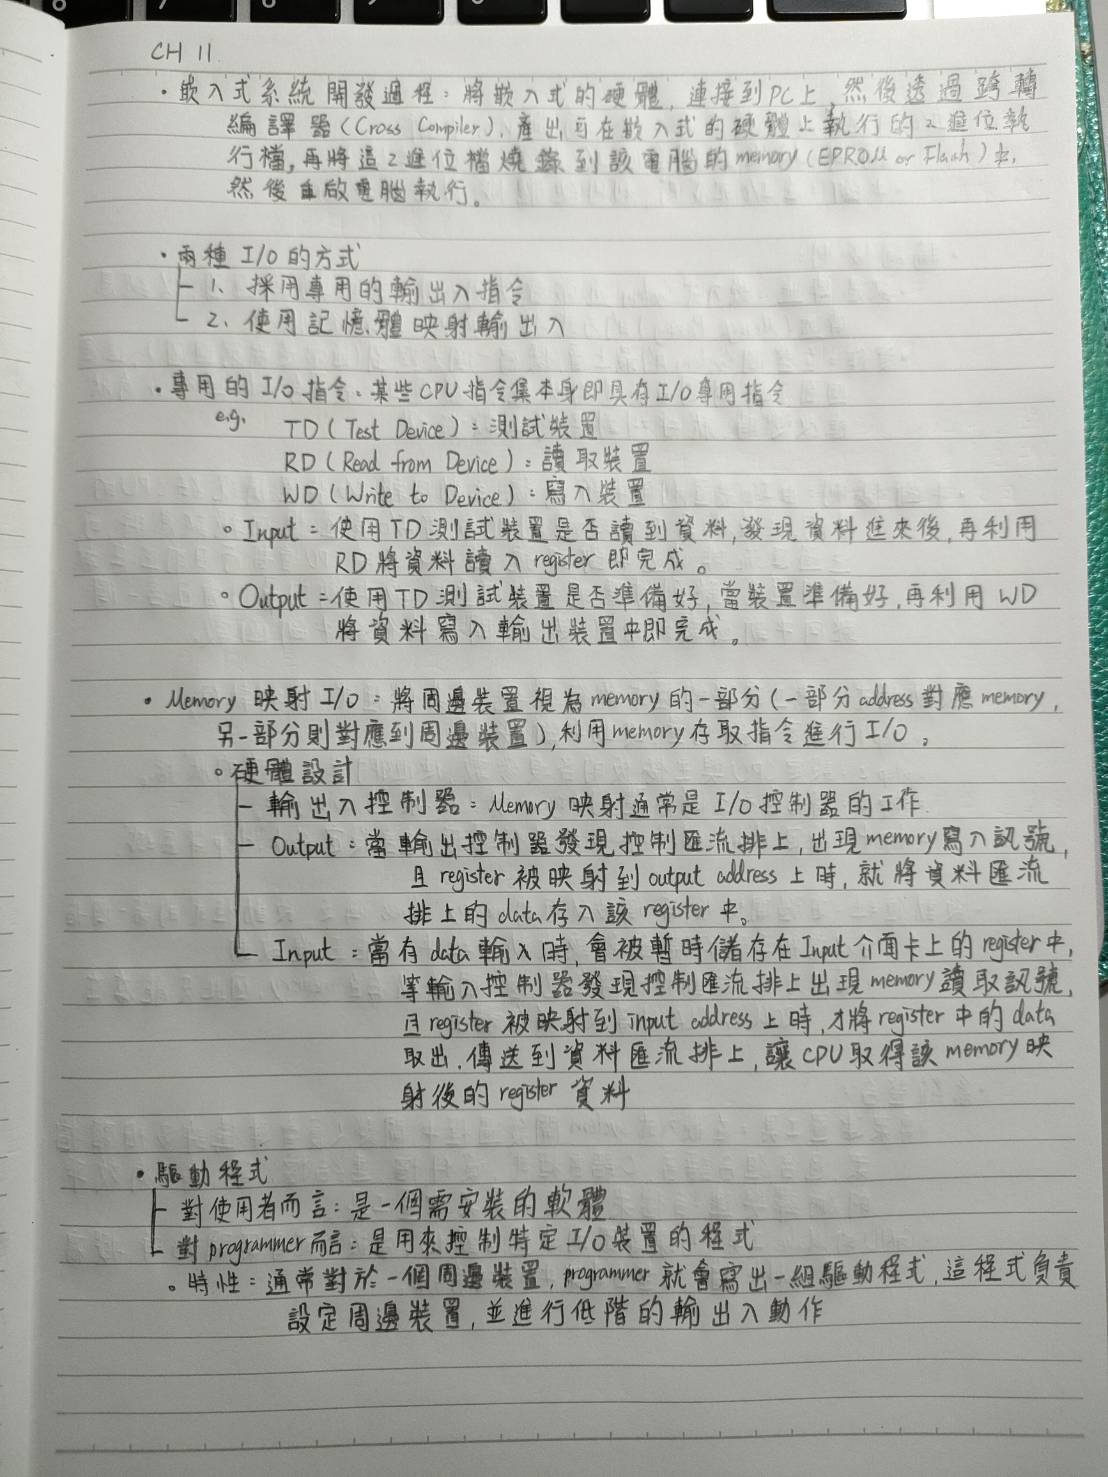 CH 11
・嵌入式系統開發過程：將嵌入式的硬體，連接到PC上，然後透過跨轉
編譯器(Cross Compiler)，產出可在嵌入式的硬體上執行的2進位執
行檔，再將這2進位檔燒錄到該電腦的memory(EPROM or Flash)中，
然後重啟電腦執行。
・兩種 I/O 的方式
1、採用專用的輸出入指令
2、使用記憶體映射輸出入
・專用的I/O指令：某些CPU指令集本身即具有I/O專用指令
e.g. TD(Test Device)：測試裝置
RD(Read from Device)：讀取裝置
WD(Write to Device)：寫入裝置
。Input：使用TD測試裝置是否讀到資料，發現資料進來後，再利用
RD將資料讀入register即完成。
。Output：使用TD測試裝置是否準備好，當裝置準備好，再利用WD
將資料寫入輸出裝置中即完成。
・Memory 映射 I/O：將周邊裝置視為memory的一部分(一部分address對應memory，
另一部分則對應到周邊裝置)，利用memory存取指令進行I/O。
。硬體設計
輸出入控制器：Memory 映射通常是 I/O控制器的工作.
Output：當輸出控制器發現控制匯流排上，出現memory寫入訊號，
且register被映射到output address上時，就將資料匯流
排上的data存入該register中。
Input：當有data輸入時，會被暫時儲存在Input介面卡上的register中，
等輸入控制器發現控制匯流排上出現memory讀取訊號，
且register被映射到input address上時，才將register中的data
取出，傳送到資料匯流排上，讓CPU取得該memory映
射後的register資料
・驅動程式
對使用者而言：是一個需安裝的軟體
對programmer而言：是用來控制特定I/O裝置的程式
。特性：通常對於一個周邊裝置，programmer就會寫出一組驅動程式，這程式負責
設定周邊裝置，並進行低階的輸出入動作